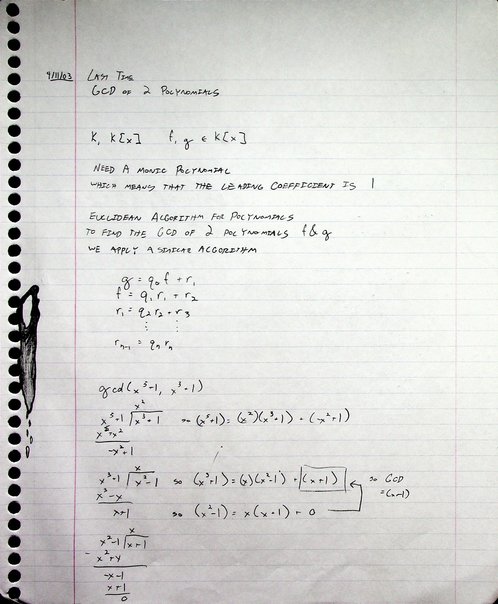 9/11/03 LAST TIME
GCD OF 2 POLYNOMIALS
K, K[x] f, g ∈ K[x]
NEED A MONIC POLYNOMIAL
WHICH MEANS THAT THE LEADING COEFFICIENT IS 1
EUCLIDEAN ALGORITHM FOR POLYNOMIALS
TO FIND THE GCD OF 2 POLYNOMIALS f & g
WE APPLY A SIMILAR ALGORITHM
g = q₀f + r₁
f = q₁r₁ + r₂
r₁ = q₂r₂ + r₃
⋮ ⋮
rₙ₋₁ = qₙrₙ
gcd(x⁵-1, x³+1)
x²
x⁵+1 √x³+1 so (x⁵+1) = (x²)(x³+1) + (-x²+1)
x⁵+x²
-x²+1
x
x³+1 √x²-1 so (x³+1) = (x)(x²-1) + (x+1) so GCD
x³-x = (x+1)
x+1 so (x²-1) = x(x-1) + 0
x
x²-1 √x+1
- x²+x
-x-1
x+1
0